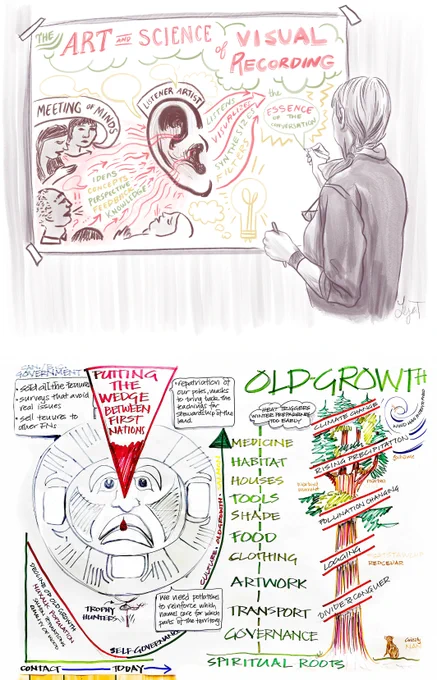 THE ART AND SCIENCE of VISUAL RECORDING
MEETING OF MINDS
LISTENER ARTIST
IDEAS
CONCEPTS
PERSPECTIVE
FEEDBACK
KNOWLEDGE
LISTENS
VISUALIZES
SYNTHESIZES
FILTERS
the
ESSENCE
OF THE
CONVERSATION
GOVERNMENT
• sold all the tenures
• surveys that avoid
real issues
• sell tenures to
other FNs
PUTTING
THE
WEDGE
BETWEEN
FIRST
NATIONS
• repatriation of
our poles, masks
to bring back the
teachings for
stewardship of the
land
DECLINE OF OLD GROWTH
TROPHY
HUNTERS
We need potlatches
to reinforce which
names care for which
parts of the territory
CULTURE
SELF GOVERNANCE
CONTACT
TODAY
OLD-GROWTH
HEAT TRIGGERS
WINTER PREPARING
TOO EARLY
MEDICINE
HABITAT
HOUSES
TOOLS
SHADE
FOOD
CLOTHING
ARTWORK
TRANSPORT
GOVERNANCE
SPIRITUAL ROOTS
CLIMATE CHANGE
RISING PRECIPITATION
POLLINATION CHANGING
LOGGING
REDCEDAR
DIVIDE & CONQUER